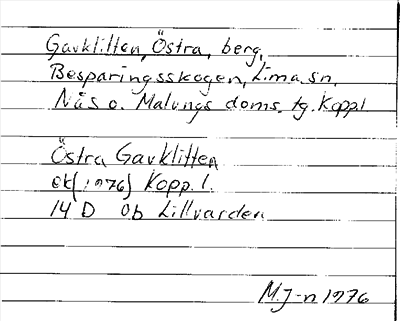 Gavklitten, Östra, berg,
Besparingsskogen, Lima sn,
Näs o. Malungs doms. tg. Koppl
Östra Gavklitten
ek (1976) Kopp. l.
14 D 0b Lillvarden
M.J-n 1976